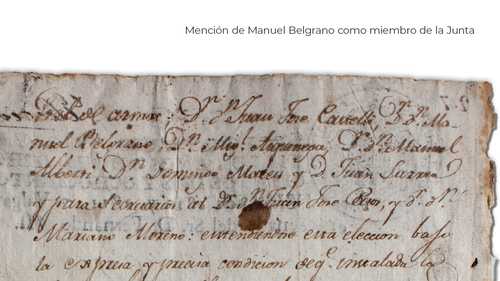 Mención de Manuel Belgrano como miembro de la Junta
de armas: Dr. Dn. Juan Jose Castelli, Dr. Dn. Ma-
nuel Belgrano, Dn. Migl. Azquenaga, Dr. Dn. Manuel
Alberti, Dn. Domingo Mateu y D. Juan Larrea
y para Secretarios á los Dres. Dn. Juan Jose Paso, y Dr. Dn.
Mariano Moreno: entendiendose esta eleccion bajo
la expresa, y precisa condicion de q. instalada la